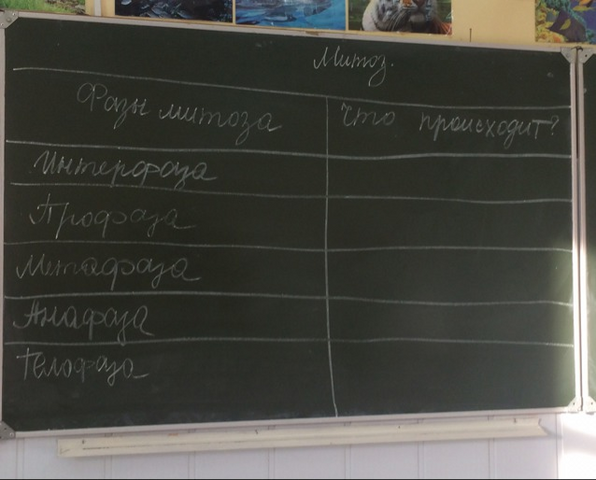 Митоз.
Фазы митоза
Что происходит?
Интерфаза
Профаза
Метафаза
Анафаза
Телофаза